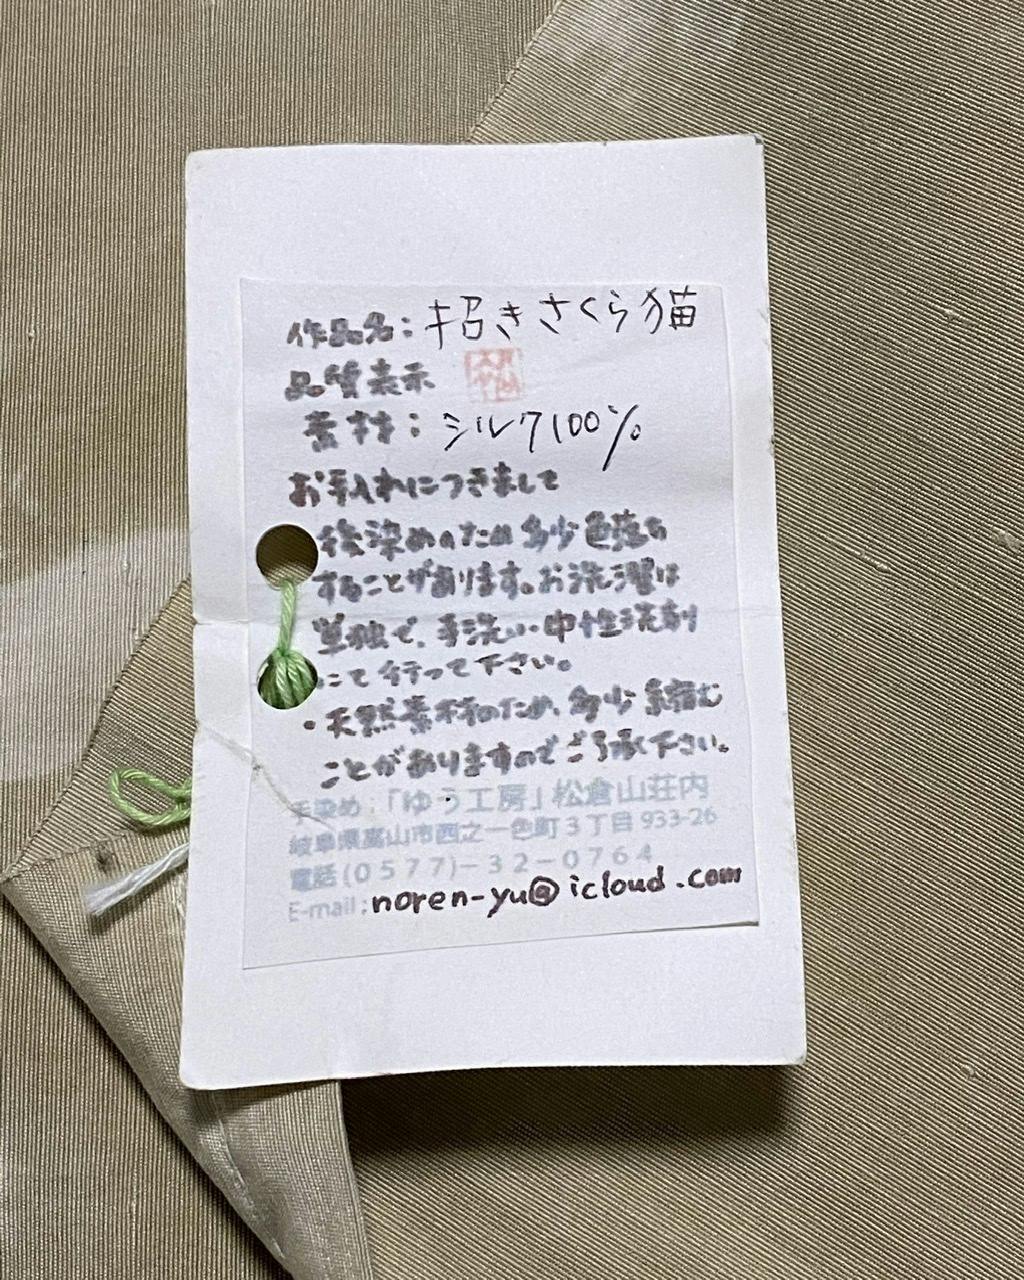 作品名：招きさくら猫
品質表示
素材：シルク100%
お手入れにつきまして
後染めのため多少色落ち
することがあります。お洗濯は
単独で、手洗い・中性洗剤
にて行って下さい。
・天然素材のため、多少縮む
ことがありますのでご了承下さい。
手染め：「ゆう工房」松倉山荘内
岐阜県高山市西之一色町3丁目933-26
電話(0577)-32-0764
E-mail：noren-yu@icloud.com